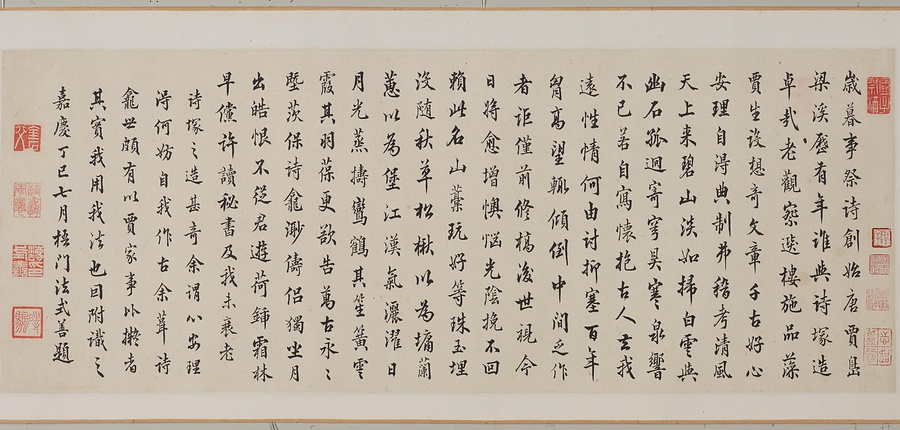 歲暮事祭詩創始唐賈島
梁溪歷有年誰與詩塚造
卓哉老觀察選樓施品藻
賈生設想奇文章千古好心
安理自得典制弗稽考清風
天上來碧山淡如掃白雲與
幽石孤迥寄穹昊寒泉響
不已若自寫懷抱古人去我
遠性情何由討抑塞百年
胷高望輒傾倒中間乏作
者詎僅前修槁後世視今
日將愈增懊惱光陰挽不回
賴此名山藁玩好等珠玉埋
沒随秋草松楸以為墉蘭
蕙以為堡江漢氣灑濯日
月光蒸擣鸞鶴其笙簧雲
霞其羽葆更歌告萬古永〻
墍茨保詩龕渺儔侶獨坐月
出皓恨不從君遊荷鍤霜林
早儻許讀秘書及我未衰老
詩塚之造甚奇余謂心安理
得何妨自我作古余葺詩
龕世頗有以賈家事擬者
其實我用我法也因附識之
嘉慶丁巳七月梧門法式善題